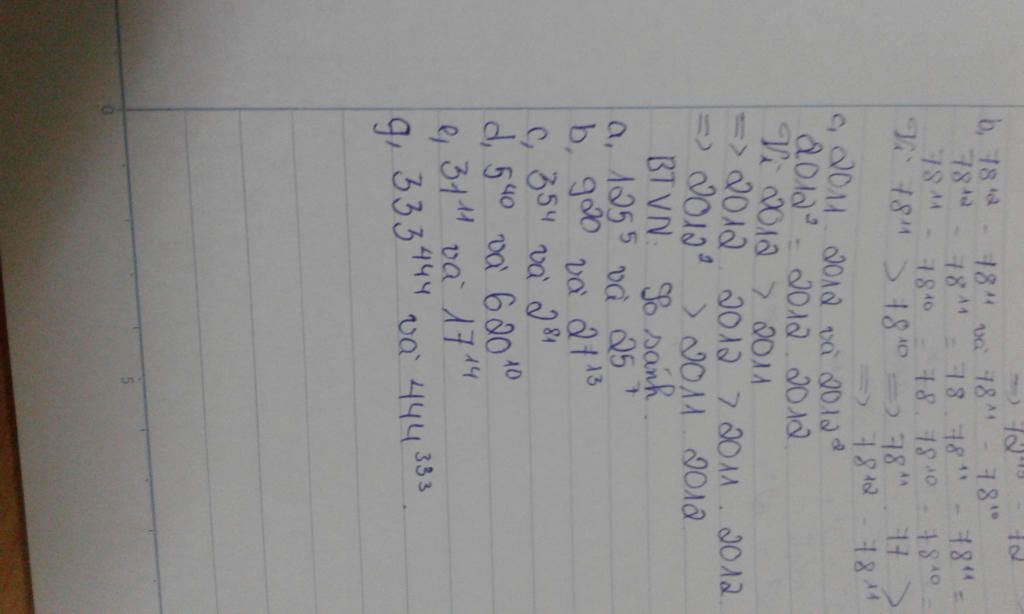 => 72⁴⁵ - 72
b, 78¹² - 78¹¹ và 78¹¹ - 78¹⁰
78¹² - 78¹¹ = 78 . 78¹¹ - 78¹¹ =
78¹¹ - 78¹⁰ = 78 . 78¹⁰ - 78¹⁰ =
Vì 78¹¹ > 78¹⁰ => 78¹¹ . 77 >
=> 78¹² - 78¹¹
c, 2011 . 2012 và 2012²
2012² = 2012 . 2012
Vì 2012 > 2011
=> 2012 . 2012 > 2011 . 2012
=> 2012² > 2011 . 2012
BTVN: So sánh
a, 125⁵ và 25⁷
b, 920 và 27¹³
c, 3⁵⁴ và 2⁸¹
d, 5⁴⁰ và 620¹⁰
e, 31¹¹ và 17¹⁴
g, 333⁴⁴⁴ và 444³³³